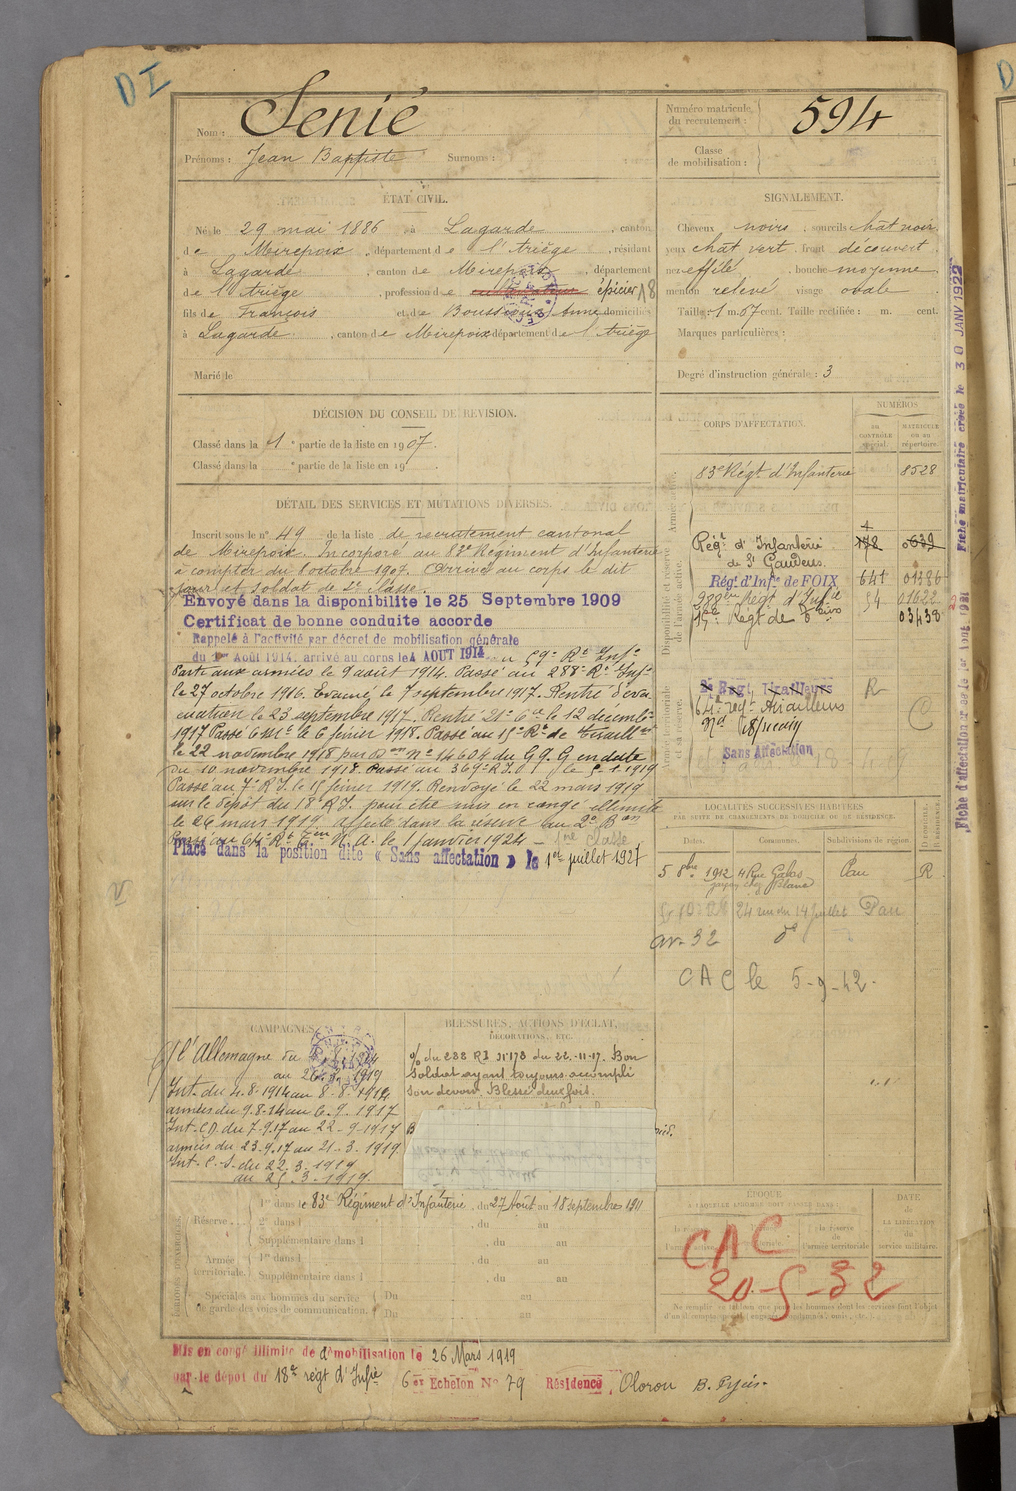 DI
Nom : Senié
Prénoms : Jean Baptiste Surnoms :
Numéro matricule du recrutement : 594
Classe de mobilisation :
ÉTAT CIVIL.
Né le 29 mai 1886 à Lagarde, canton
de Mirepoix, département de l'Ariège, résidant
à Lagarde, canton de Mirepoix, département
de l'Ariège, profession de cultivateur épicier 18
fils de François et de Anne domiciliés
à Lagarde, canton de Mirepoix département de l'Ariège
Marié le
SIGNALEMENT.
Cheveux noirs, sourcils chât noir.
yeux chât vert, front découvert
nez effilé, bouche moyenne
menton relevé visage ovale
Taille : 1 m. 67 cent. Taille rectifiée : m. cent.
Marques particulières :
Degré d'instruction générale : 3
DÉCISION DU CONSEIL DE RÉVISION.
Classé dans la 1e partie de la liste en 1907.
Classé dans la e partie de la liste en 19
DÉTAIL DES SERVICES ET MUTATIONS DIVERSES.
Inscrit sous le n° 49 de la liste de recrutement cantonal
de Mirepoix. Incorporé au 83e Régiment d'Infanterie
à compter du 1 octobre 1907. Arrivé au corps le dit
jour et soldat de 2e classe.
Envoyé dans la disponibilité le 25 Septembre 1909
Certificat de bonne conduite accordé
Rappelé à l'activité par décret de mobilisation générale
du 1er Août 1914. arrivé au corps le 4 AOUT 1914 au 59e Rt Infie
Parti aux armées le 9 août 1914. Passé au 288e Rt Infie
le 27 octobre 1916. Evacué le 7 septembre 1917. Rentré d'éva
cuation le 23 septembre 1917. Rentré 21e Cie le 12 décemb
1917 Passé C.M.1e le 6 février 1918. Passé au 15e Rt de Tiraill
le 22 novembre 1918 par Don N° 14604 du G.Q.G en date
du 10 novembre 1918. Passé au 369e R.I. le 5-1-1919
Passé au 7e R.I. le 15 février 1919. Renvoyé le 22 mars 1919
sur le dépôt du 18e R.I. pour être mis en congé illimité
le 26 mars 1919. Affecté dans la réserve au 2e Bon
le 1 janvier 1924
Placé dans la position dite « Sans affectation » le 1er juillet 1927
CORPS D'AFFECTATION.
NUMÉROS
au contrôle spécial.
matricule ou au répertoire.
Armée active.
83e Régt d'Infanterie 8528
Disponibilité et réserve de l'armée active.
Régt d'Infanterie de St Gaudens. 0639
Régt d'Infie de FOIX 641 01386
288eme Régt d'Infie 54 01622
15e Régt de 03438
Armée territoriale et sa réserve.
2e Regt Tirailleurs R
64e régt Tirailleurs
Sans Affectation
LOCALITÉS SUCCESSIVES HABITÉES
PAR SUITE DE CHANGEMENTS DE DOMICILE OU DE RÉSIDENCE.
Dates. Communes. Subdivisions de région.
5 8bre 1912 4 Rue Pau R
24 rue du 14 Juillet Pau
av- 32 do
CAC le 5-9-42.
CAMPAGNES
c/ l'Allemagne du
au 1919
Int. du 4.8.1914 au 8.8.1914
armées du 9.8.14 au 6.9.1917
Int. C.D. du 7.9.17 au 22-9-1917
armées du 23.9.17 au 21-3-1919.
Int. C.S. du 22.3.1919
au 25.3.1919.
BLESSURES, ACTIONS D'ÉCLAT,
DÉCORATIONS, ETC.
O/ du 288 RI N°178 du 22-11-17. Bon
soldat ayant toujours accompli
son devoir. Blessé deux fois.
Réserve. 1re dans le 83e Régiment d'Infanterie, du 27 Août au 18 septembre 1911
2e dans l , du au
Supplémentaire dans l , du au
Armée territoriale. 1re dans l , du au
Supplémentaire dans l , du au
Spéciales aux hommes du service de garde des voies de communication. Du au
Du au
ÉPOQUE
À LAQUELLE L'HOMME DOIT PASSER DANS :
la réserve de l'armée territoriale
DATE de LA LIBÉRATION du service militaire.
CAC
20-5-32
Mis en congé illimité de démobilisation le 26 Mars 1919
par le dépôt du 18e régt d'Infie 6e Echelon N° 79 Résidence, Oloron
Fiche matriculaire créée le 30 JANV 1922